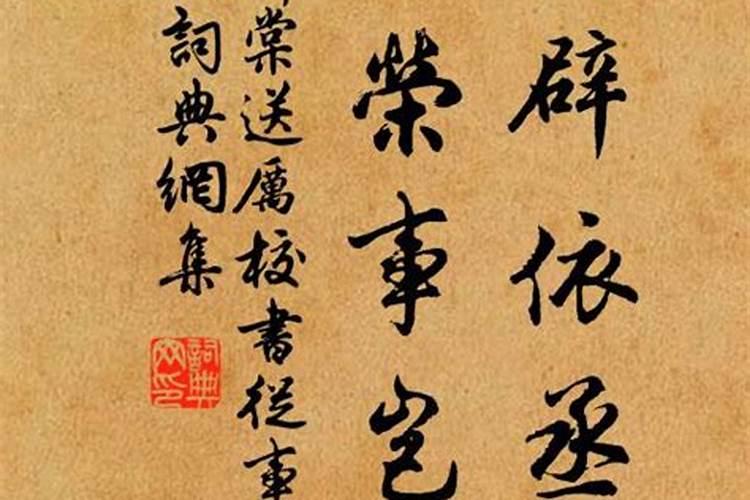 辟依丞
榮事豈
棠送厲校書從事
詞典網集
詞典網印